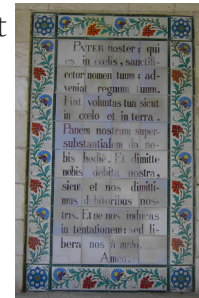 PATER noster: qui
es in cœlis, sanctifi-
cetur nomen tuum: ad-
veniat regnum tuum.
Fiat voluntas tua sicut
in cœlo et in terra.
Panem nostrum super-
substantialem da no-
bis hodie. Et dimitte
nobis debita nostra,
sicut et nos dimitti-
mus debitoribus nos-
tris. Et ne nos inducas
in tentationem: sed li-
bera nos a malo.
Amen.